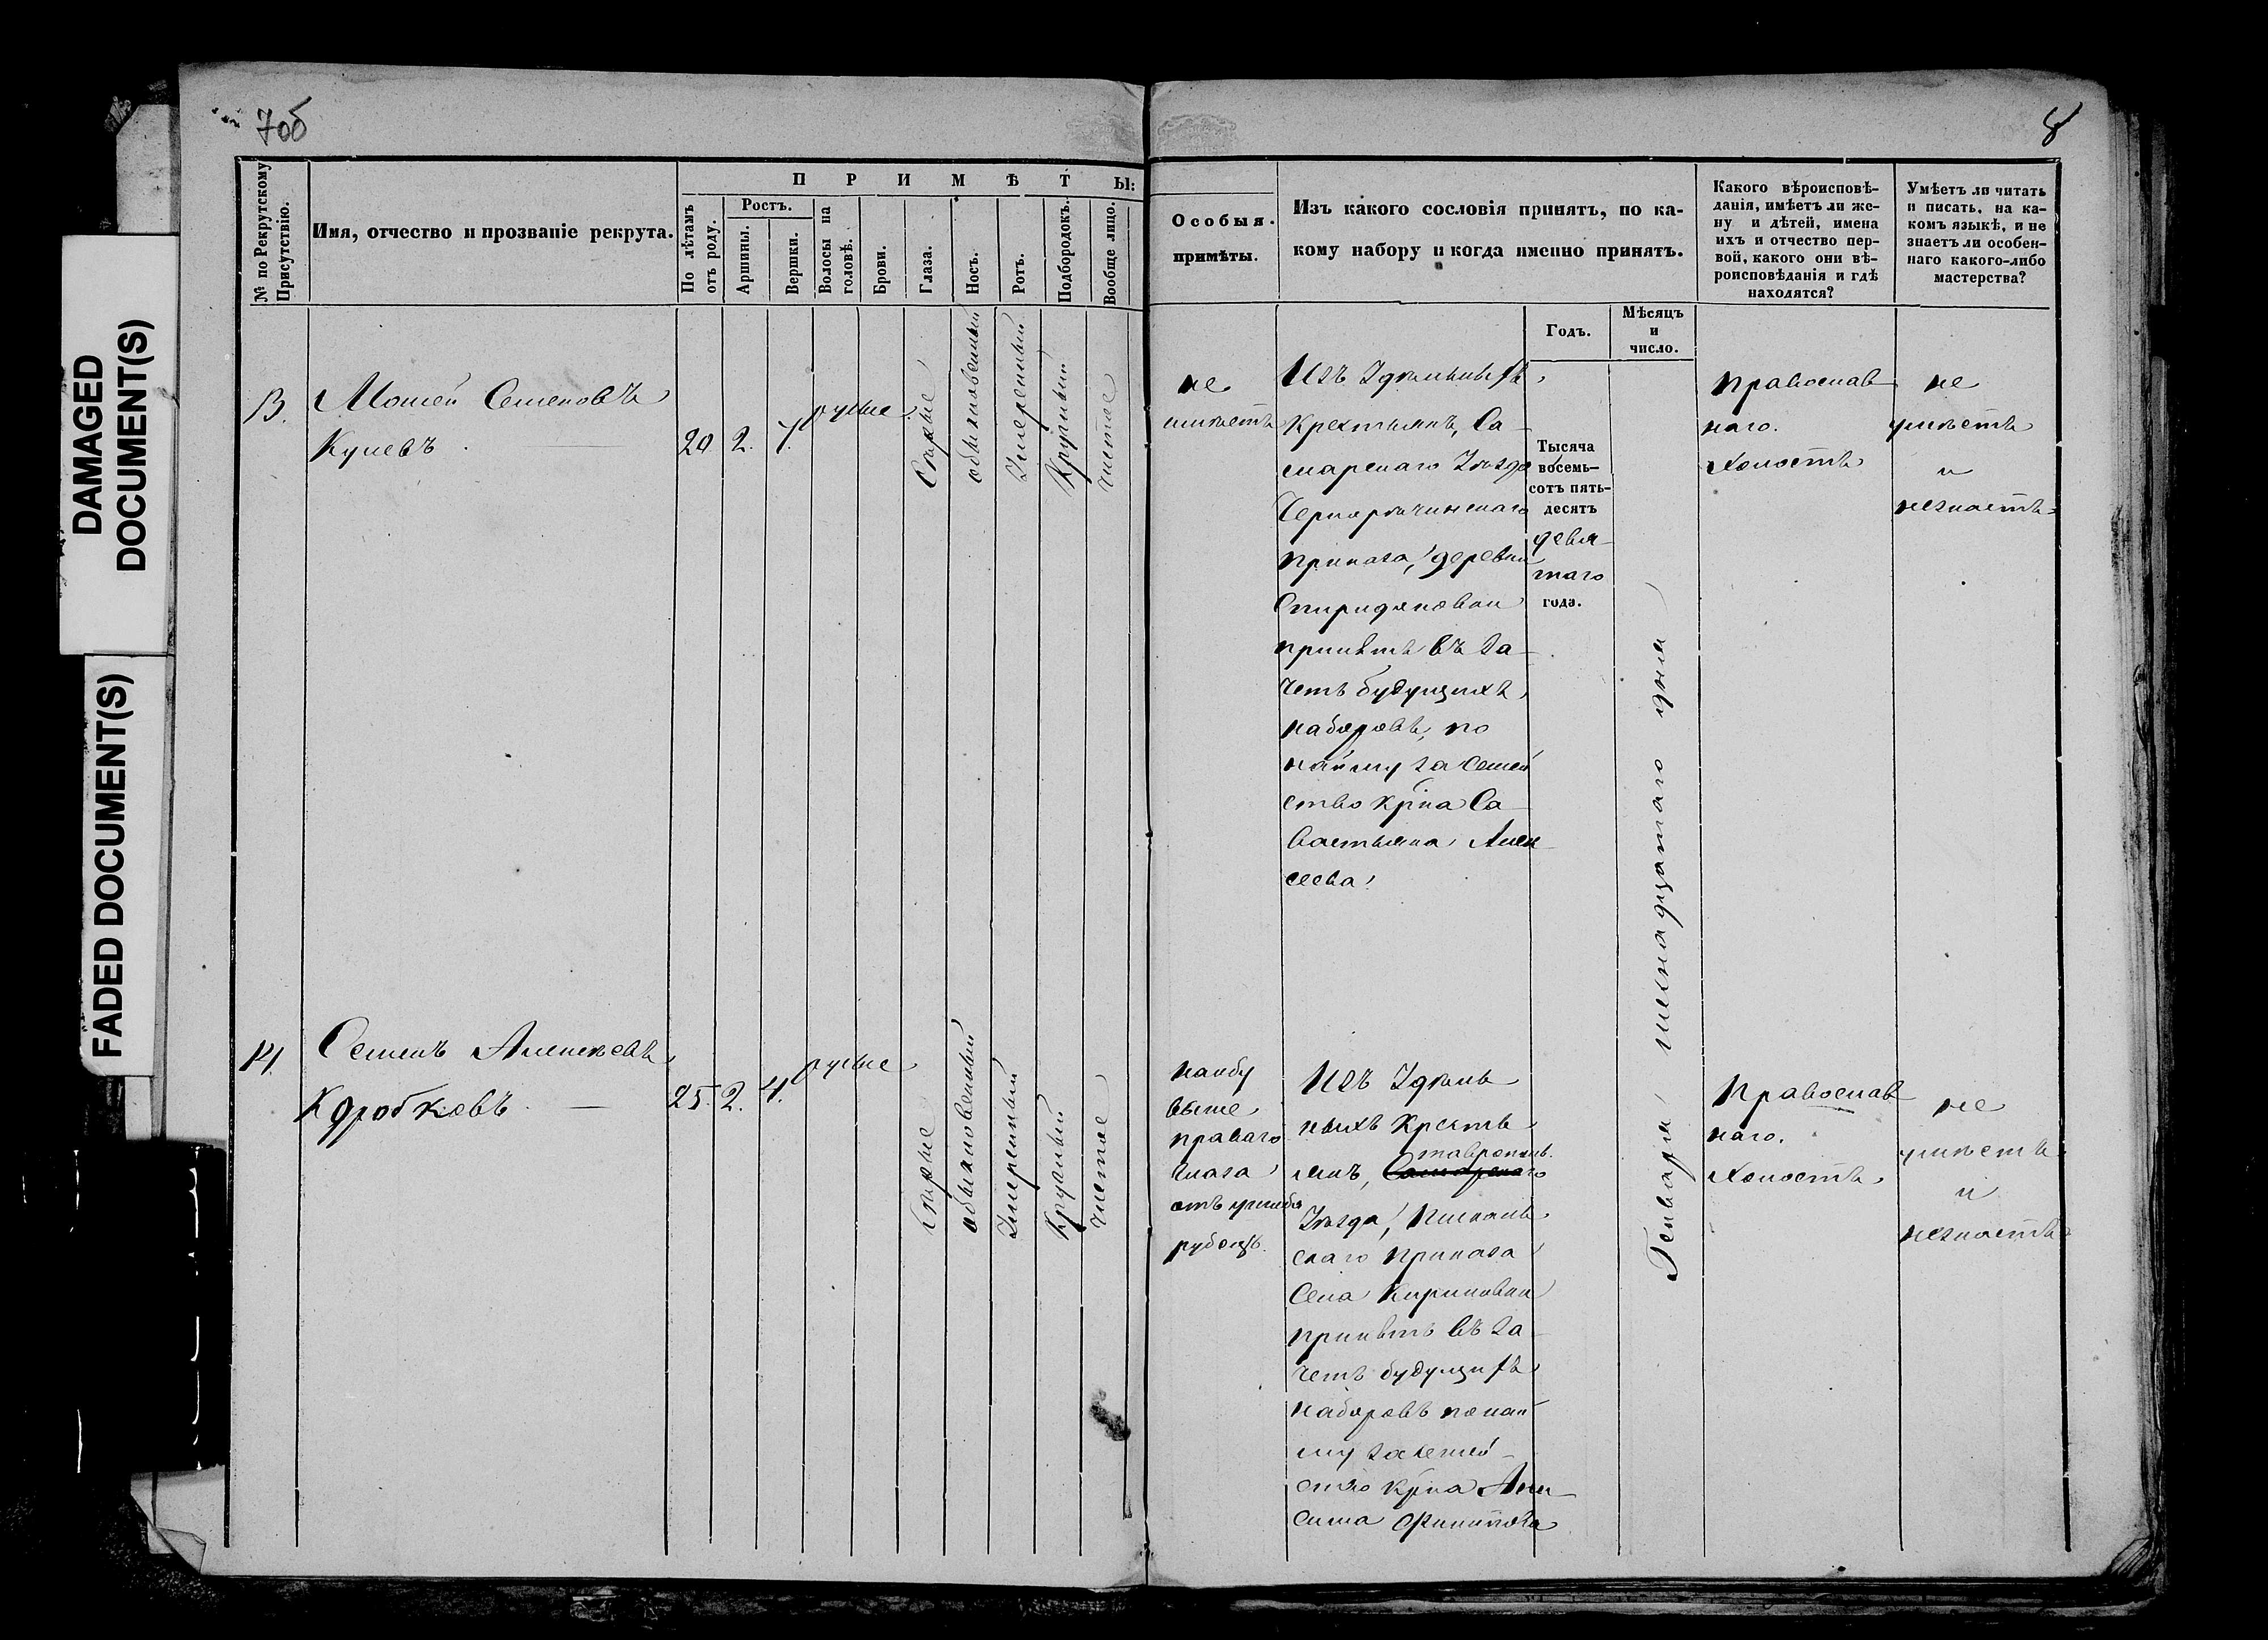 7об
8
DAMAGED
DOCUMENT(S)
FADED DOCUMENT(S)
№ по Рекрутскому
Присутствію.
Имя, отчество и прозваніе рекрута.
П Р И М Ѣ Т Ы:
По лѣтамъ
отъ роду.
Ростъ.
Аршины.
Вершки.
Волосы на
головѣ.
Брови.
Глаза.
Носъ.
Ротъ.
Подбородокъ.
Вообще лицо.
Особыя
примѣты.
Изъ какого сословія принятъ, по ка-
кому набору и когда именно принятъ.
Годъ.
Мѣсяцъ
и
число.
Какого вѣроисповѣ-
данія, имѣетъ ли же-
ну и дѣтей, имена
ихъ и отчество пер-
вой, какого они вѣ-
роисповѣданія и гдѣ
находятся?
Умѣетъ ли читать
и писать, на ка-
комъ языкѣ, и не
знаетъ ли особен-
наго какого-либо
мастерства?
13.
Семеновъ
20
2.
русые
Сѣрые
обыкновенный
Умеренный
Круглый
чистое
не
имѣетъ
Изъ Удельныхъ
Крестьянъ, Са-
марскаго Уѣзда
Чернорѣчинскаго
приказа, деревни
Спиридоновки
принятъ въ за-
четъ будущихъ
наборовъ, по
найму за семей
ство кр͠на Са-
вастьяна Алек
сеева.
Тысяча
восемь-
сотъ пять-
десятъ
девя-
таго
года.
Генваря шеснадцатаго дня
Православ
наго.
Холостъ
не
умѣетъ
и
незнаетъ
14.
Семенъ Алексѣевъ
Коробковъ
25.
2.
4.
русые
Сѣрые
обыкновенный
Умеренный
Круглый
чистое
на лбу
выше
праваго
глаза
отъ ушиба
рубецъ.
Изъ Удель
ныхъ Кресть
янъ, Самарскаго
ставрополь.
Уѣзда,
скаго приказа
Села Кириловки
принятъ въ за-
четъ будущихъ
наборовъ по най
му за семей-
ство кр͠на Ани
сима Филипова
Православ
наго.
Холостъ.
не
умѣетъ
и
незнаетъ